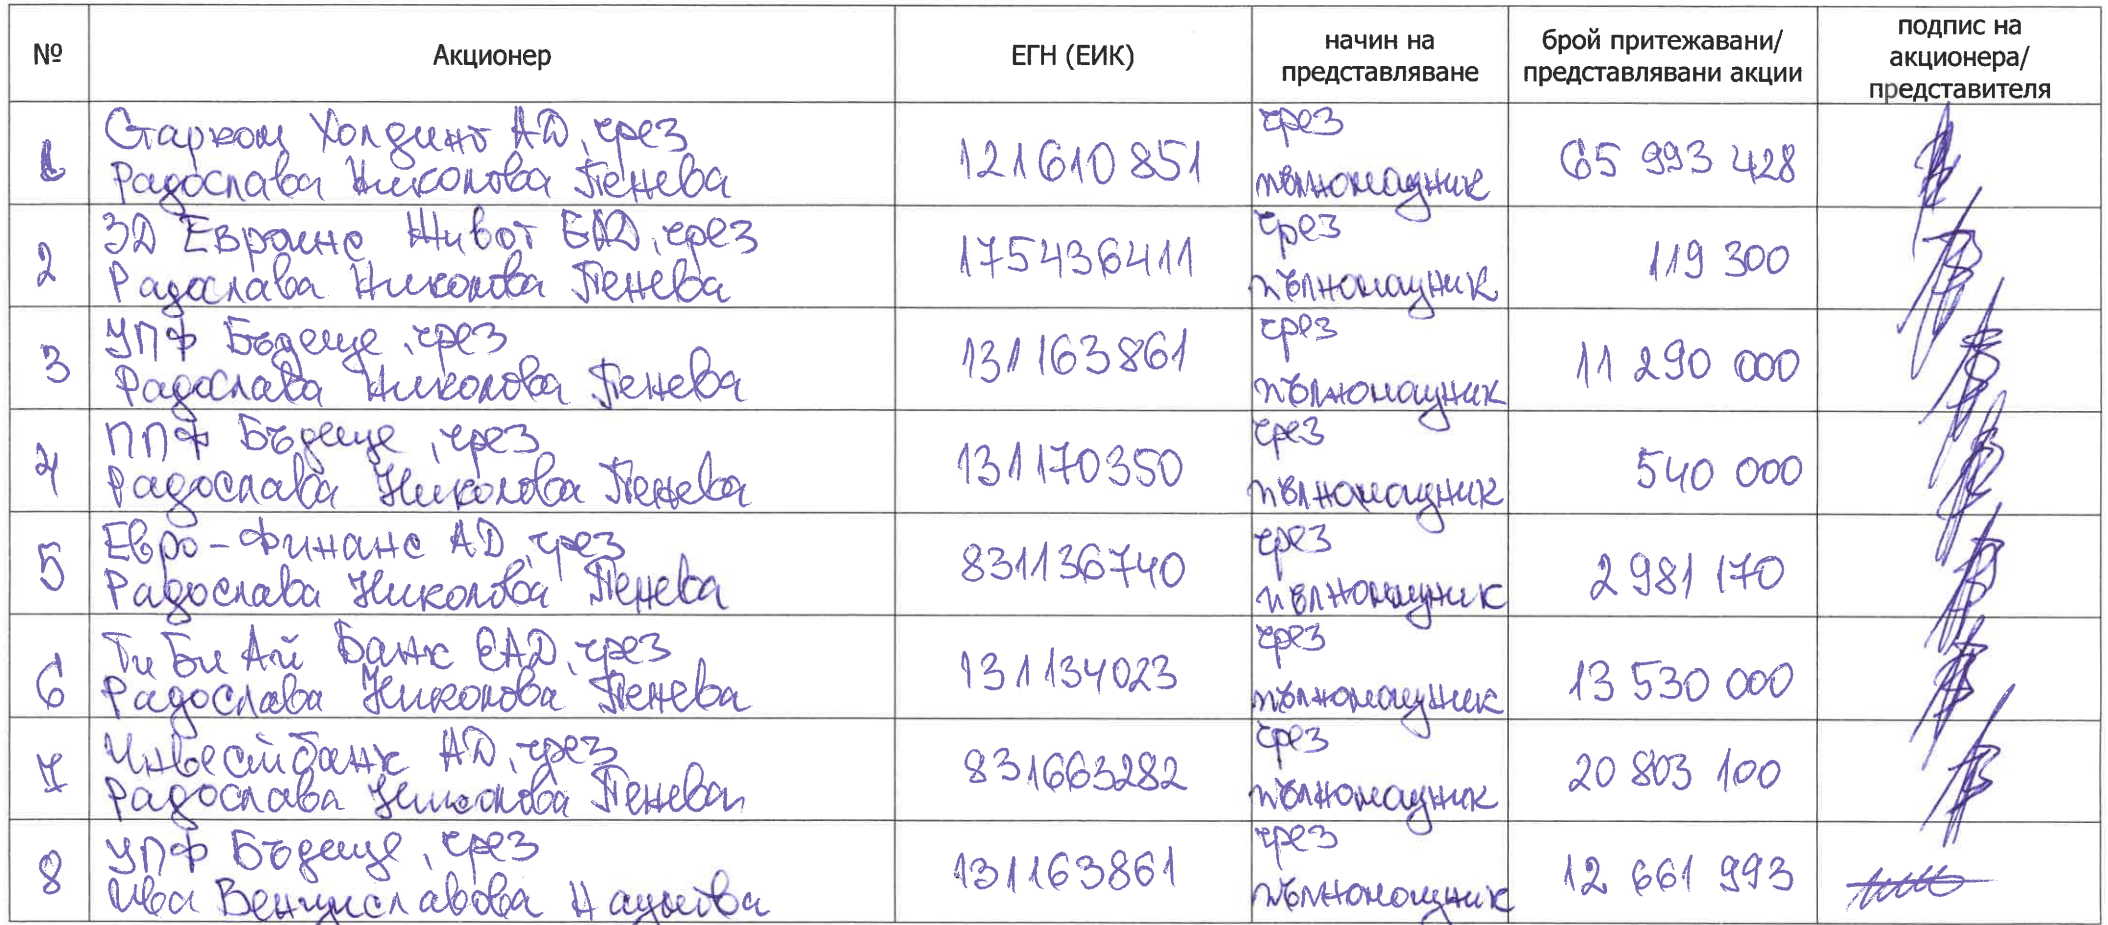 №
Акционер
ЕГН (ЕИК)
начин на
представляване
брой притежавани/
представлявани акции
подпис на
акционера/
представителя
1
Старком Холдинг АД, чрез
Радослава Николова Пенева
121610851
чрез
пълномощник
65 993 428
2
ЗД Евроинс Живот ЕАД, чрез
Радослава Николова Пенева
175436411
чрез
пълномощник
119 300
3
УПФ Бъдеще, чрез
Радослава Николова Пенева
131163861
чрез
пълномощник
11 290 000
4
ППФ Бъдеще, чрез
Радослава Николова Пенева
131170350
чрез
пълномощник
540 000
5
Евро-Финанс АД, чрез
Радослава Николова Пенева
831136740
чрез
пълномощник
2 981 170
6
Ти Би Ай Банк ЕАД, чрез
Радослава Николова Пенева
131134023
чрез
пълномощник
13 530 000
7
Инвестбанк АД, чрез
Радослава Николова Пенева
831663282
чрез
пълномощник
20 803 100
8
УПФ Бъдеще, чрез
Ива Венциславова
131163861
чрез
пълномощник
12 661 993